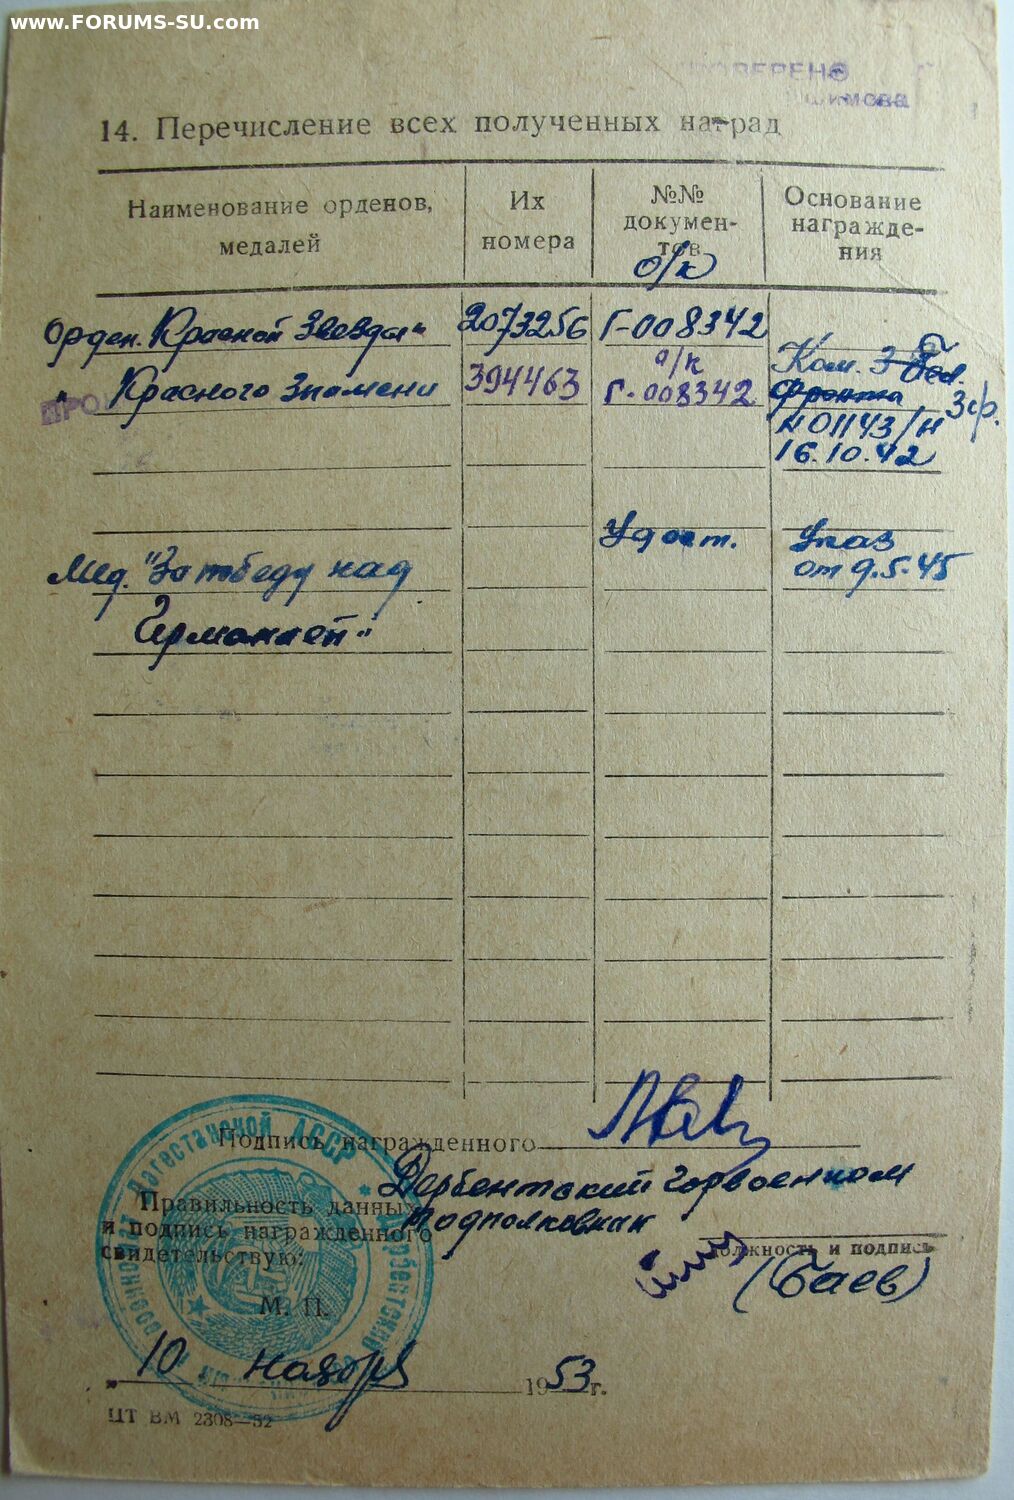 www.FORUMS-SU.com
ПРОВЕРЕНО
14. Перечисление всех полученных наград
Наименование орденов, медалей
Их номера
№№ документов
о/к
Основание награждения
Орден „Красной Звезды"
2073256
Г-008342
" Красного Знамени
394463
о/к
Г-008342
Ком. З Бел.
фронта
Зф.
401143/н
16.10.42
Мед. "За победу над
Германией"
Удост.
Указ
от 9.5.45
Подпись награжденного
Правильность данных
и подпись награжденного
свидетельствую:
Дербентский Горвоенком
подполковник
должность и подпись
(Баев)
М. П.
„10 ноября 1953 г.
ЦТ ВМ 2308—52
Дагестанской АССР * Дербентский